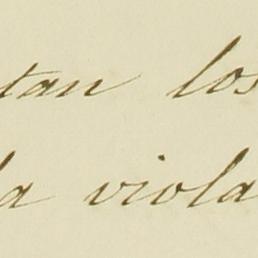 tan los
la viola